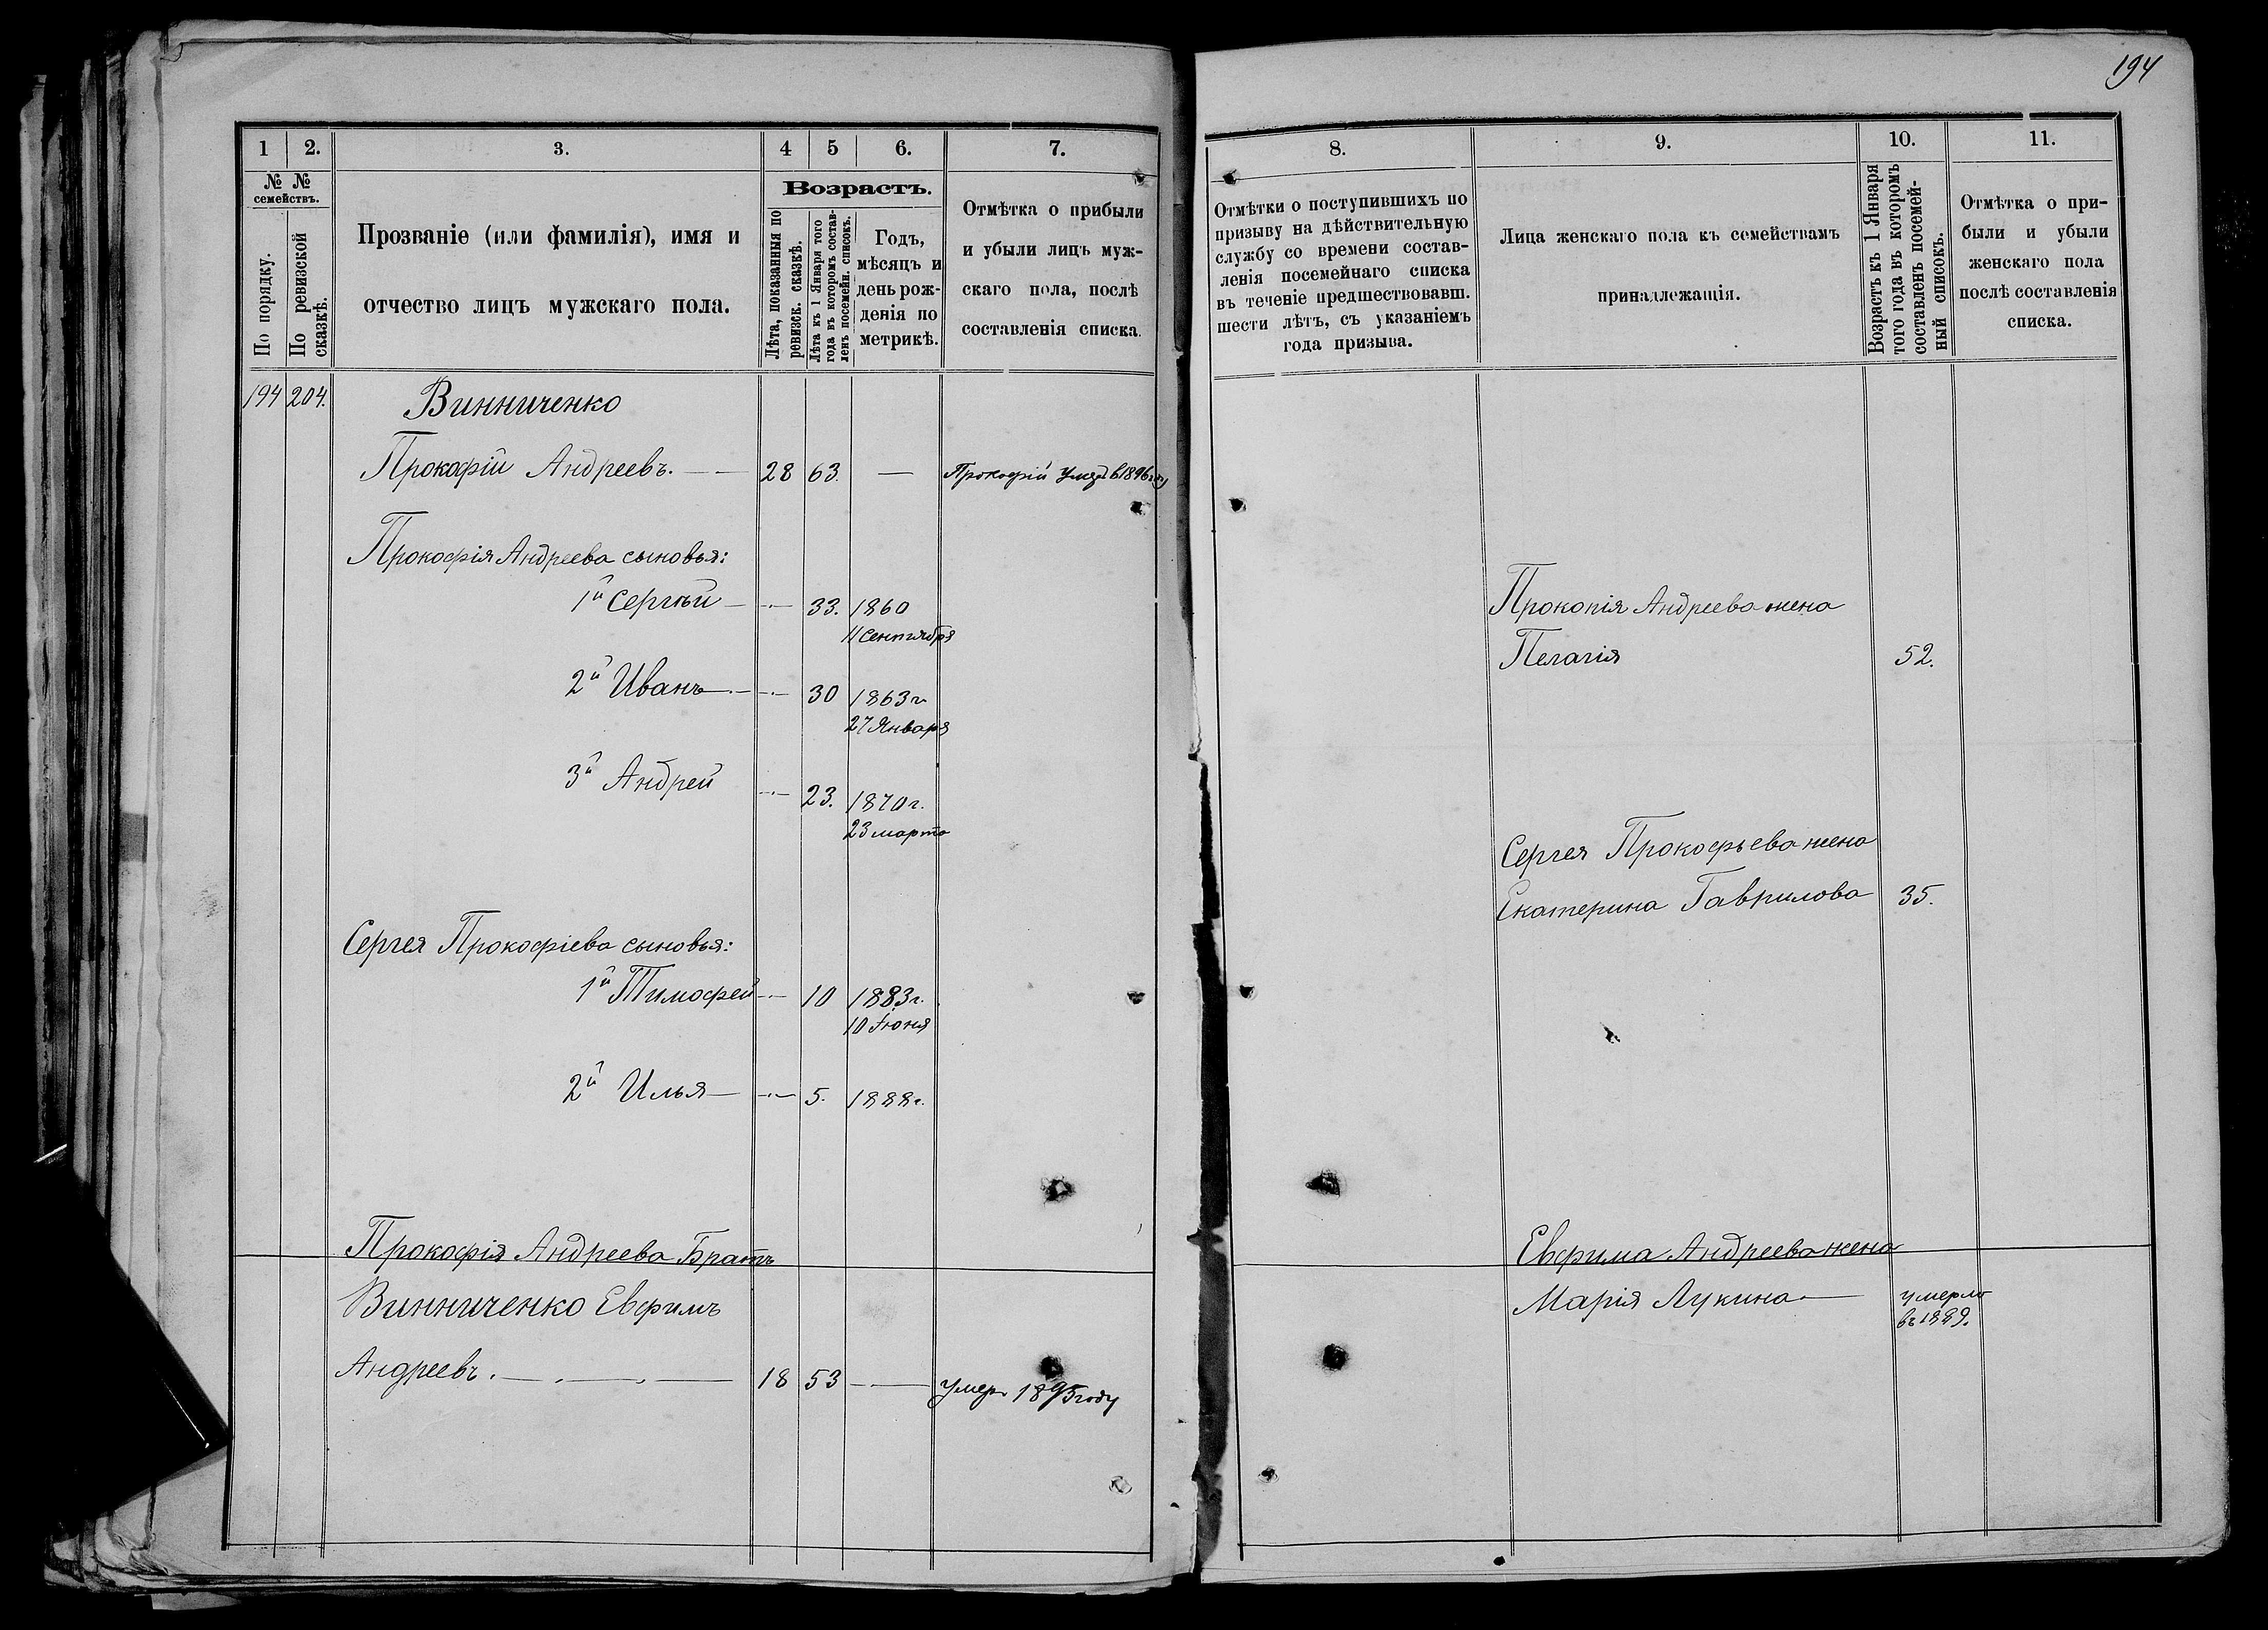 194
1 2. 3. 4 5 6. 7.
№ № семействъ.
По порядку.
По ревизской сказкѣ.
Прозваніе (или фамилія), имя и
отчество лицъ мужскаго пола.
Возрастъ.
Лѣта, показанныя по
ревизск. сказкѣ.
Лѣта къ 1 Января того
года въ которомъ состав-
ленъ посемейн. списокъ.
Годъ,
мѣсяцъ и
день рож-
денія по
метрикѣ.
Отмѣтка о прибыли
и убыли лицъ муж-
скаго пола, послѣ
составленія списка.
194 204. Винниченко
Прокофій Андреевъ. 28 63. — Прокофій умер в 1896 г.
Прокофія Андреева сыновья:
1й Сергѣй — 33. 1860
11 Сентября
2й Иванъ — 30 1863 г.
27 Января
3й Андрей — 23. 1870 г.
23 марта
Сергея Прокофіева сыновья:
1й Тимофей — 10 1883 г.
10 Іюня
2й Илья — 5. 1888 г.
Прокофія Андреева Братъ
Винниченко Евфимъ
Андреевъ. — 18 53 — умеръ 1895 году
8. 9. 10. 11.
Отмѣтки о поступившихъ по
призыву на дѣйствительную
службу со времени состав-
ленія посемейнаго списка
въ теченіе предшествовавш.
шести лѣтъ, съ указаніемъ
года призыва.
Лица женскаго пола къ семействамъ
принадлежащія.
Возрастъ къ 1 Января
того года въ которомъ
составленъ посемей-
ный списокъ.
Отмѣтка о при-
были и убыли
женскаго пола
послѣ составленія
списка.
Прокопія Андреева жена
Пелагія 52.
Сергея Прокофьева жена
Екатерина Гаврилова 35.
Евфима Андреева жена
Марія Лукина — умерла
въ 1889.